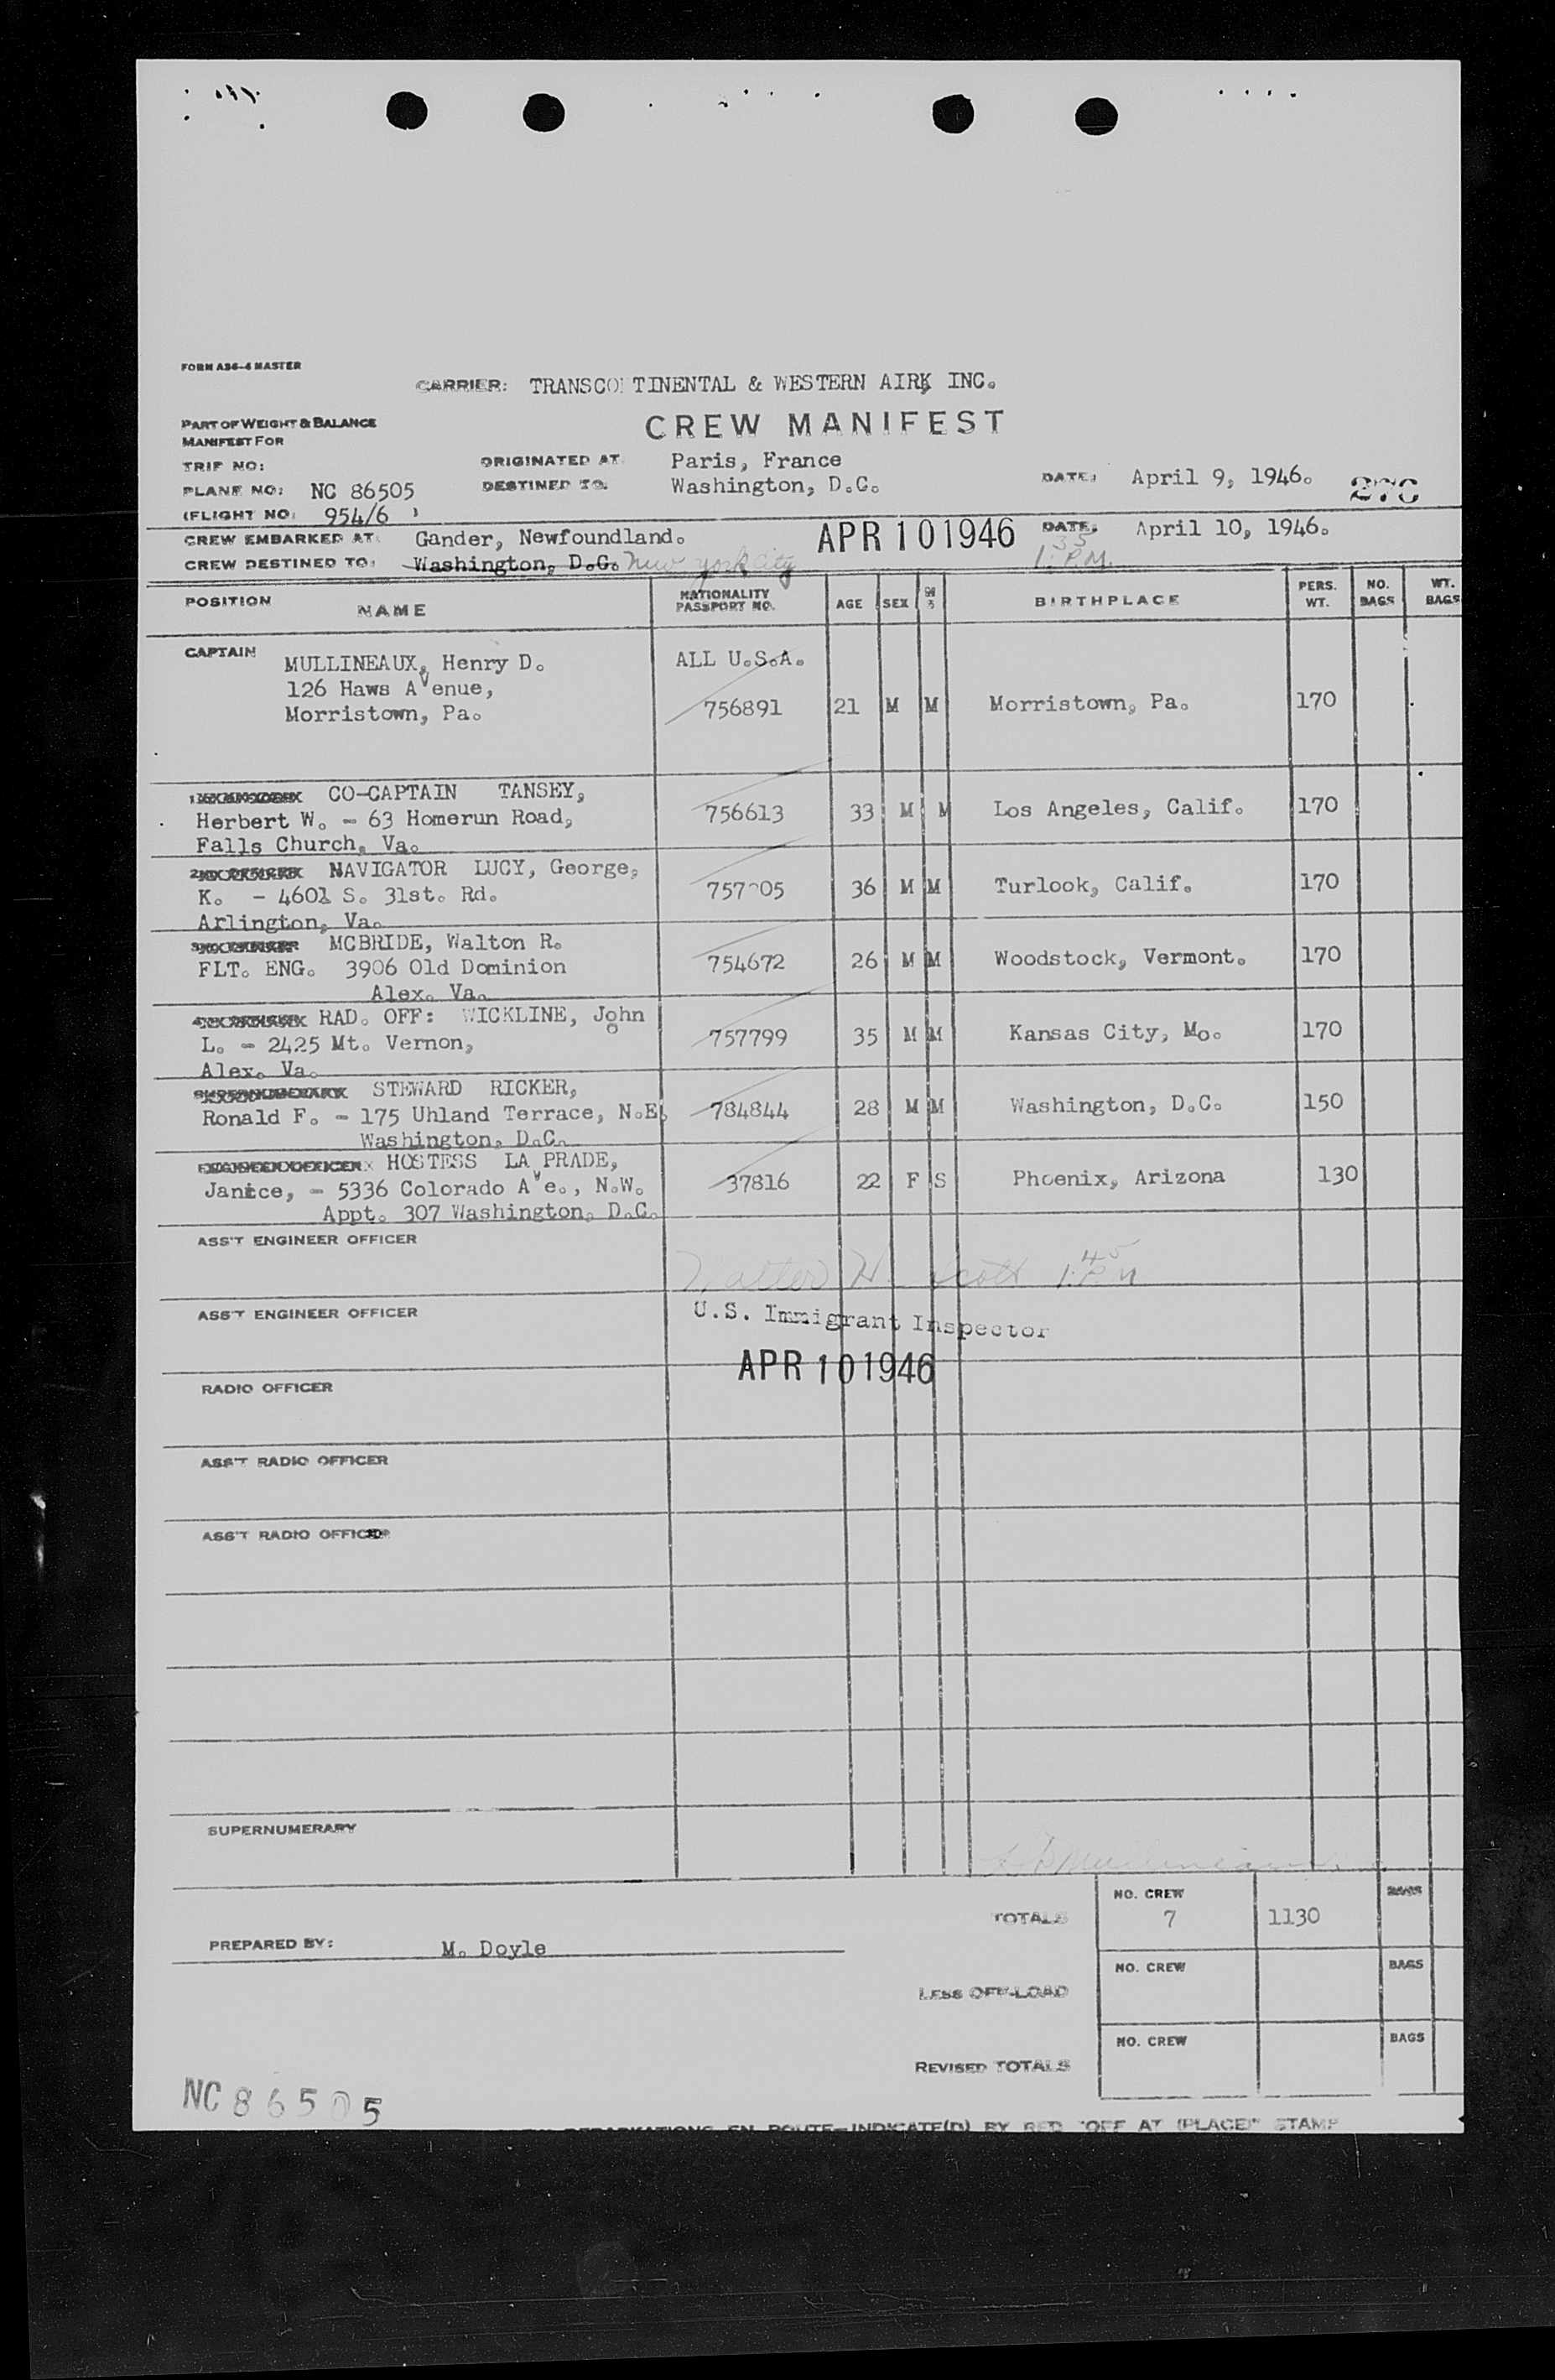 FORM A36-4 MASTER
CARRIER: TRANSCO TINENTAL & WESTERN AIR, INC.
PART OF WEIGHT & BALANCE
MANIFEST FOR
CREW MANIFEST
TRIP NO:
ORIGINATED AT: Paris, France
PLANE NO: NC 86505
DESTINED TO: Washington, D.C.
DATE: April 9, 1946.
(FLIGHT NO: 954/6 )
CREW EMBARKED AT: Gander, Newfoundland.
APR 10 1946
DATE: April 10, 1946.
CREW DESTINED TO: Washington, D.C. New york City
1:35 P.M.
POSITION NAME NATIONALITY PASSPORT NO. AGE SEX BIRTHPLACE PERS. WT. NO. BAGS WT. BAGS
CAPTAIN MULLINEAUX, Henry D. ALL U.S.A.
126 Haws Avenue,
Morristown, Pa. 756891 21 M M Morristown, Pa. 170
CO-CAPTAIN TANSEY,
Herbert W. - 63 Homerun Road, 756613 33 M M Los Angeles, Calif. 170
Falls Church, Va.
NAVIGATOR LUCY, George,
K. - 4601 S. 31st. Rd. 757 05 36 M M Turlook, Calif. 170
Arlington, Va.
MCBRIDE, Walton R.
FLT. ENG. 3906 Old Dominion 754672 26 M M Woodstock, Vermont. 170
Alex. Va.
RAD. OFF: WICKLINE, John
L. - 2425 Mt. Vernon, 757799 35 M M Kansas City, Mo. 170
Alex. Va.
STEWARD RICKER,
Ronald F. - 175 Uhland Terrace, N.E. 784844 28 M M Washington, D.C. 150
Washington, D.C.
HOSTESS LA PRADE,
Janice, - 5336 Colorado Ave., N.W. 37816 22 F S Phoenix, Arizona 130
Appt. 307 Washington, D.C.
ASS'T ENGINEER OFFICER
Walter H. Scott 1:45 P M
ASS'T ENGINEER OFFICER
U.S. Immigrant Inspector
APR 10 1946
RADIO OFFICER
ASS'T RADIO OFFICER
ASS'T RADIO OFFICER
SUPERNUMERARY
TOTALS NO. CREW 7 1130 BAGS
PREPARED BY: M. Doyle
LESS OFF-LOAD NO. CREW BAGS
REVISED TOTALS NO. CREW BAGS
NC 86505
EN ROUTE-INDICATE(D) BY RED "OFF AT (PLACE)" STAMP